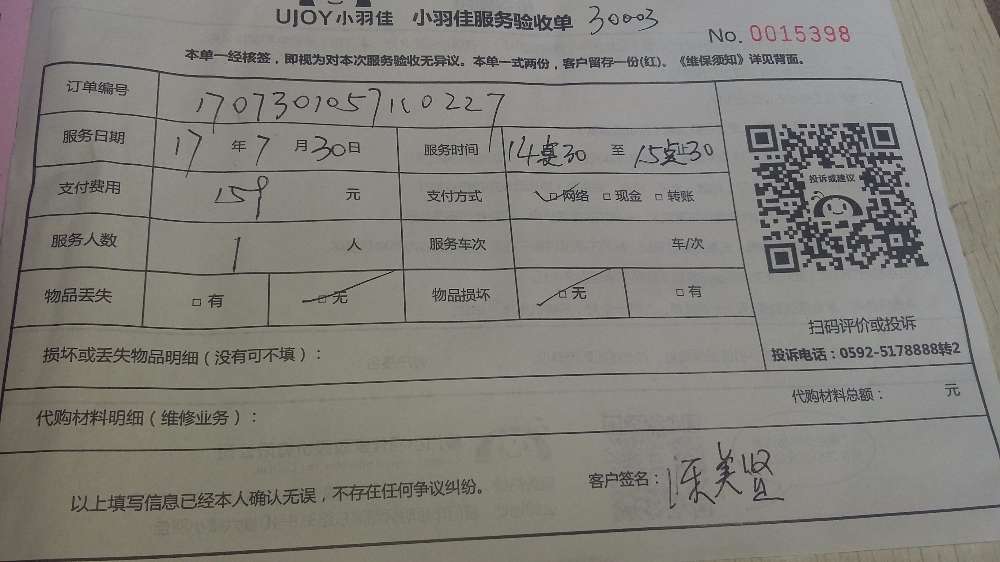 UJOY小羽佳 小羽佳服务验收单 30003
No. 0015398
本单一经核签，即视为对本次服务验收无异议。本单一式两份，客户留存一份(红)。《维保须知》详见背面。
订单编号 170730105710227
服务日期 17 年 7 月 30 日 服务时间 14点30 至 15点30
支付费用 159 元 支付方式 □网络 □现金 □转账
服务人数 1 人 服务车次 车/次
物品丢失 □有 □无 物品损坏 □无 □有
投诉或建议
扫码评价或投诉
投诉电话：0592-5178888转2
损坏或丢失物品明细（没有可不填）：
代购材料明细（维修业务）： 代购材料总额： 元
以上填写信息已经本人确认无误，不存在任何争议纠纷。 客户签名：